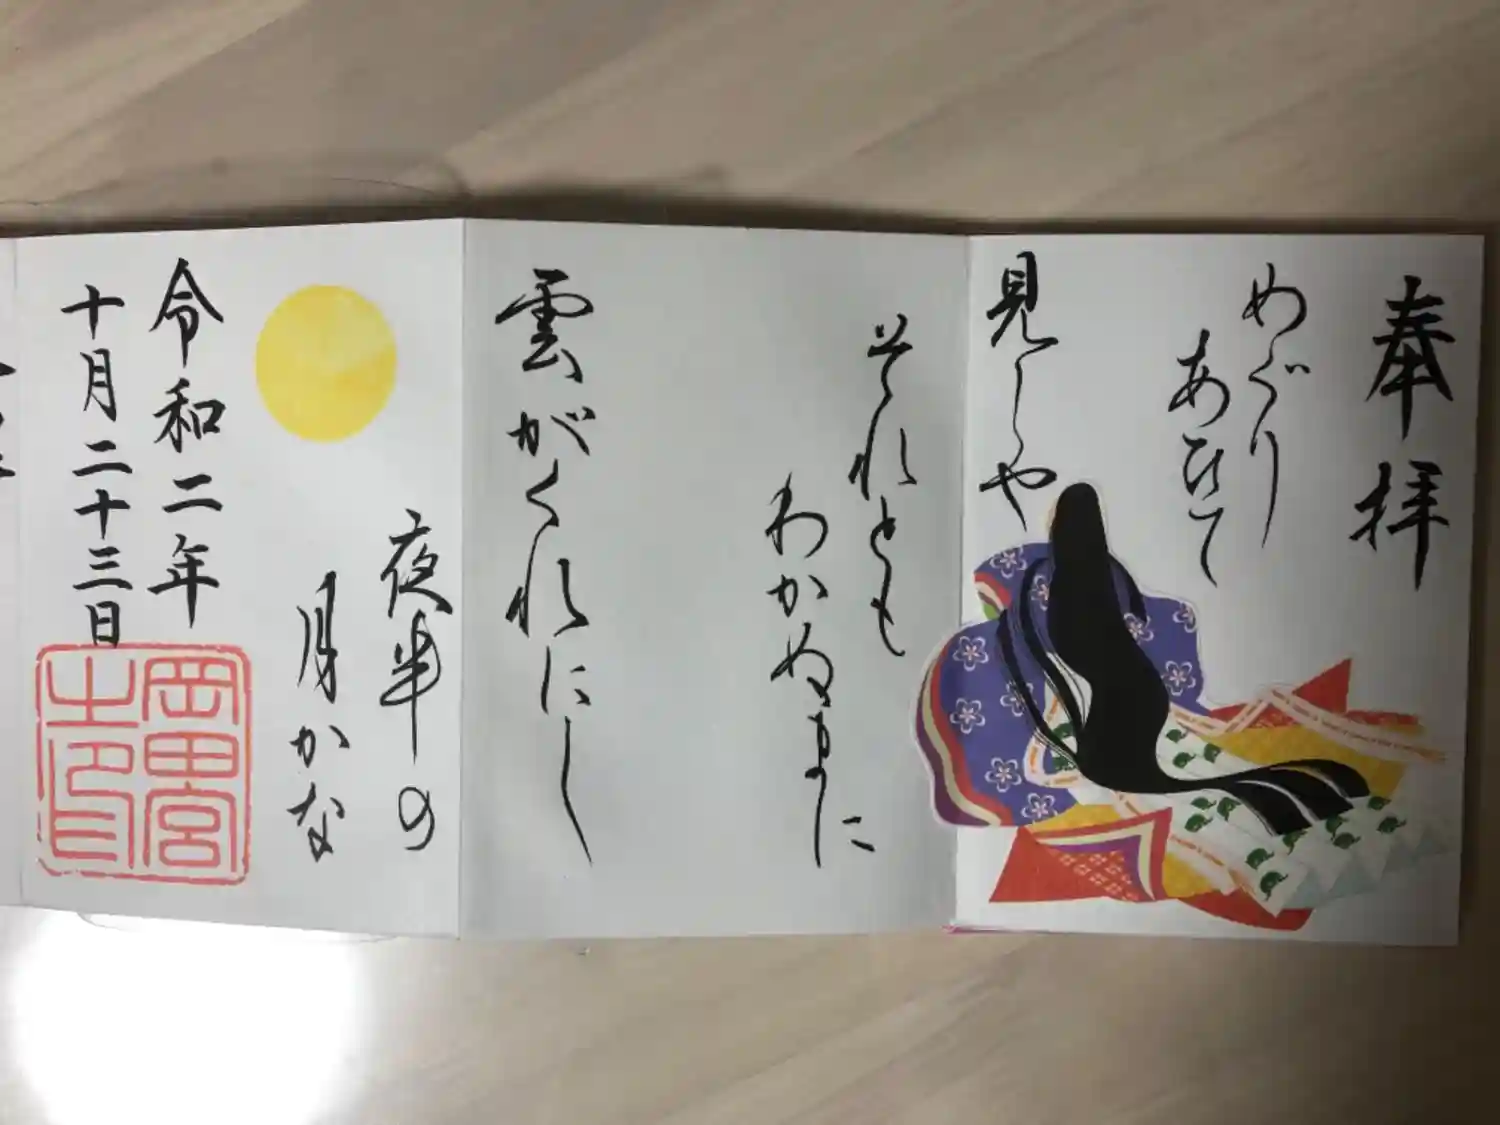 奉拝
めぐり
あひて
見しや
それとも
わかぬまに
雲がくれにし
夜半の
月かな
令和二年
十月二十三日
岡田宮
之印